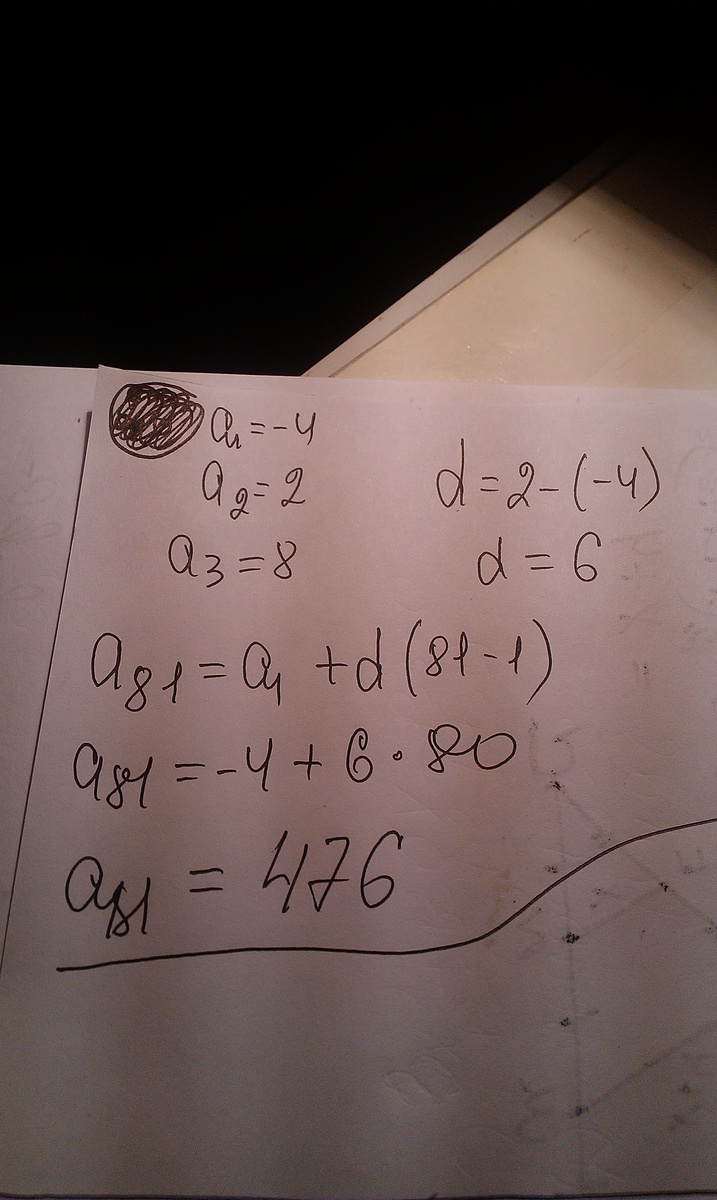 a₁=-4
a₂=2
d=2-(-4)
a₃=8
d=6
a₈₁=a₁+d(81-1)
a₈₁=-4+6·80
a₈₁=476